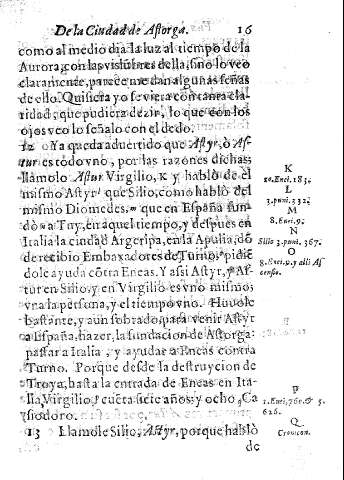 De la Ciudad de Astorga. 16
como al medio dia la luz al tiempo de la
Aurora, con las vislũbres della, sino lo veo
claramente, parece me dan algunas señas
de ello. Quisiera yo se viera con tanta cla-
ridad; que pudiera dezir, lo que con los
ojos veo lo señalo con el dedo.
12 Ya queda aduertido que Astyr, ò As-
tur es todo vno, por las razones dichas:
llamolo Astur Virgilio, K y hablò de el
mismo Astyr que Silio, como hablò del
mismo Diomedes, que en España fun-
dò a Tuy, en aquel tiempo, y despues en
Italia la ciudad Argeripa, en la Apulia, dõ
de recibio Embaxadores de Turno, pidiẽ
dole ayuda cõtra Eneas. Y assi Astyr, y As-
tur en Silio, y en Virgilio es vno mismo:
vna la persona, y el tiempo vno. Huuole
bastante, y aun sobrado, para venir Astyr
a España, hazer, la fundacion de Astorga:
passar a Italia, y ayudar a Eneas contra
Turno. Porque desde la destruycion de
Troya, hasta la entrada de Eneas en Ita-
lia, Virgilio P cuẽta siete años: y ocho Q Ca
siodoro.
13 Llamole Silio, Astyr, porque hablò
de
K
10. Enei. 183.
L
3. puni. 332.
M
8. Enei. 9.
N
Silio 3. puni. 367.
O
8. Enei. 9. y alli As
censio.
P
1. Enei. 760. & 5.
626.
Q
Cronicon.